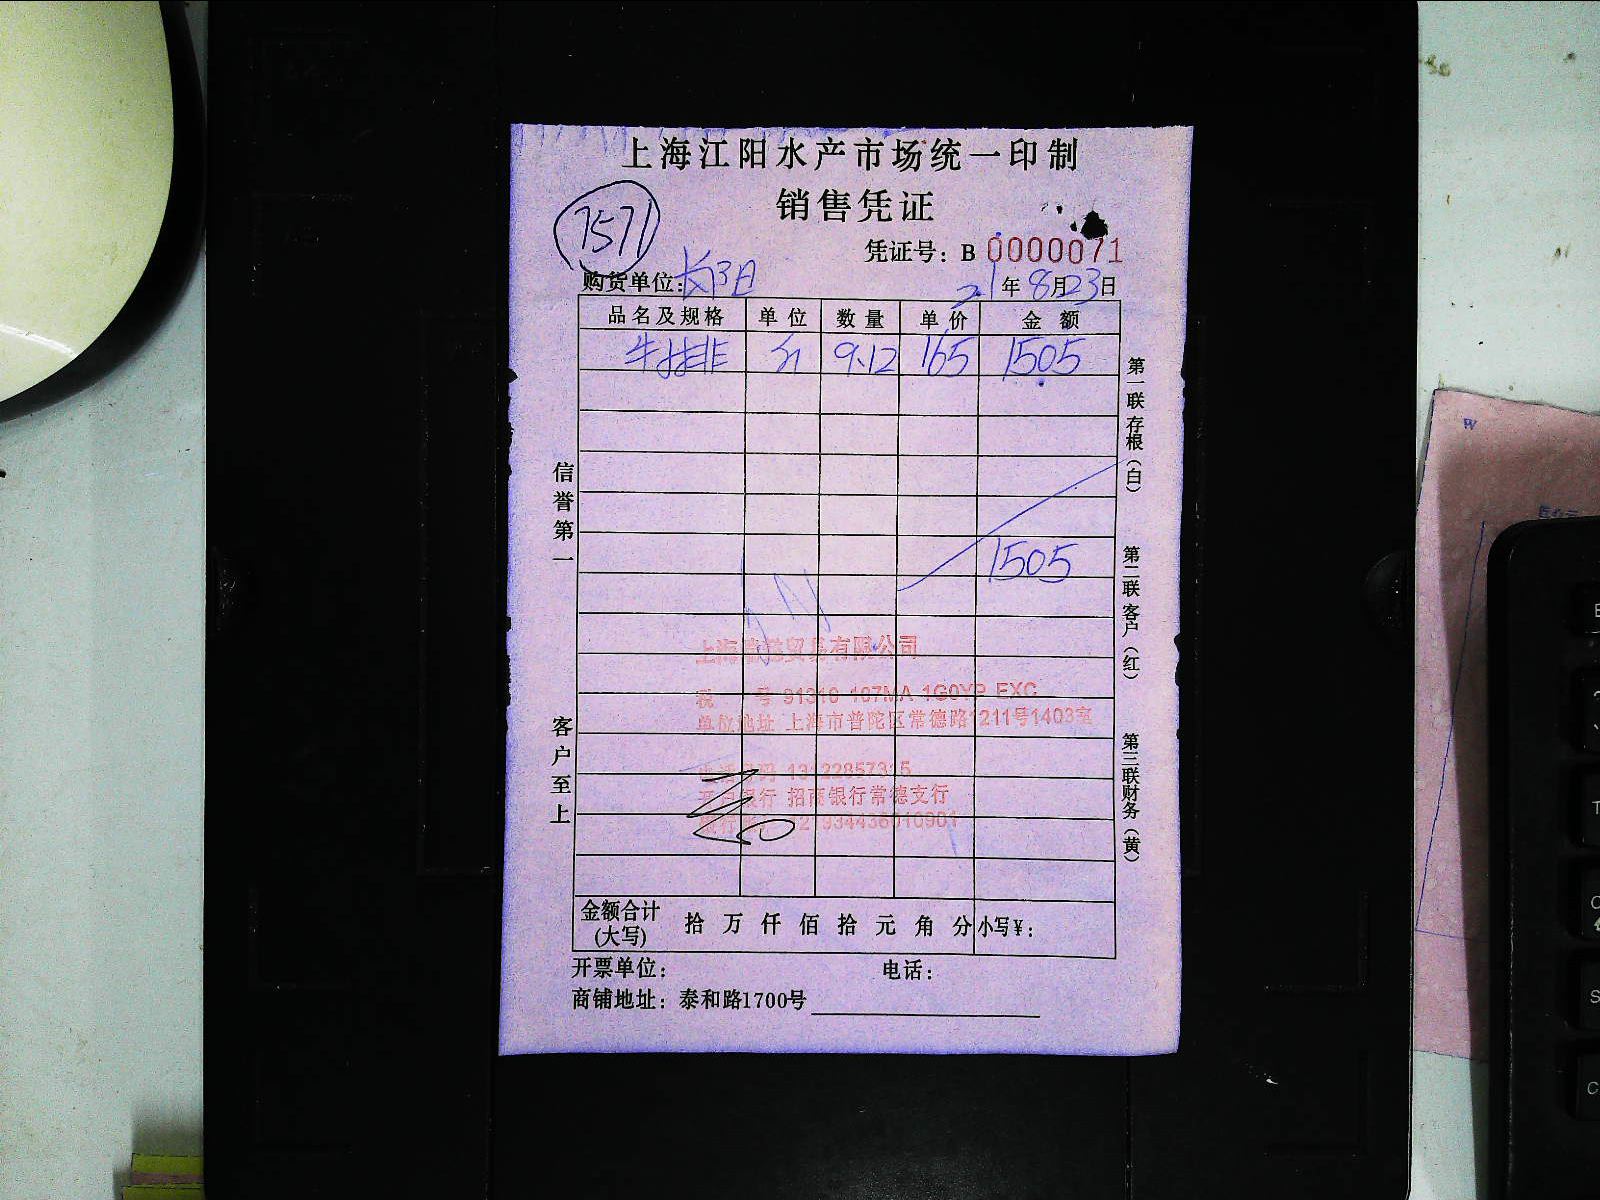 上海江阳水产市场统一印制
销售凭证
7571
凭证号：B 0000071
购货单位：
21年8月23日
品名及规格 单位 数量 单价 金额
牛排 9.12 165 1505
1505
上海 贸易有限公司
税 号 91310 107MA 1G0YP EXC
单位地址 上海市普陀区常德路1211号1403室
开户银行 招商银行常德支行
金额合计(大写) 拾 万 仟 佰 拾 元 角 分 小写¥：
开票单位： 电话：
商铺地址：泰和路1700号
信誉第一
客户至上
第一联存根（白）
第二联客户（红）
第三联财务（黄）